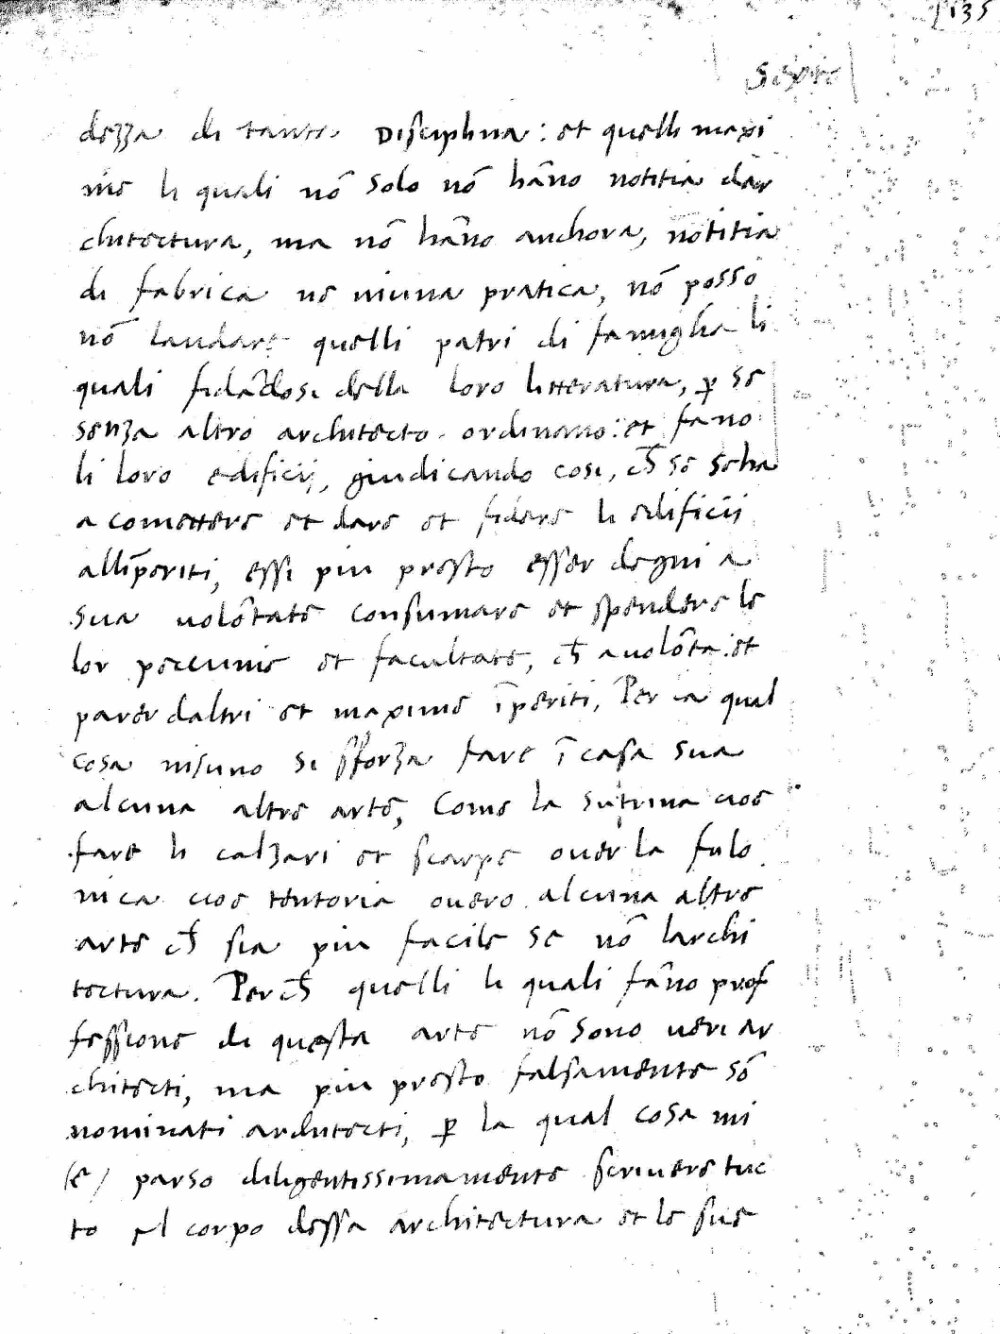 135
dezza di tante Disciplina: et quelli maxi
me li quali nō solo nō hāno notitia dar
chitectura, ma nō hāno anchora, notitia
di fabrica ne niuna pratica, nō posso
nō laudare quelli patri di famiglia li
quali fidādosi della loro litteratura, ꝑ se
senza altro architecto ordinano: et fano
li loro edificij, giudicando cosi, ch̄ se se ha
a comettere et dare et fidare li edificij
allīperiti, essi piu presto esser degni a
sua volōtate consumare et spendere le
lor peccunie et facultate, ch̄ a volōta et
parer daltri et maxime īperiti, Per la qual
cosa nisuno si sforza fare ī casa sua
alcuna altre arte, Come la sutrina cioe
fare li calzari et scarpe over la fulo
nica cioe tentoria overo alcuna altre
arte ch̄ sia piu facile se nō larchi
tectura. Perch̄ quelli li quali fāno prof
fessione di questa arte nō sono veri ar
chitecti, ma piu presto falsamente sō
nominati architecti, ꝑ la qual cosa mi
(e) parso diligentissimamente scrivere tuc
to el corpo dessa architectura et le sue